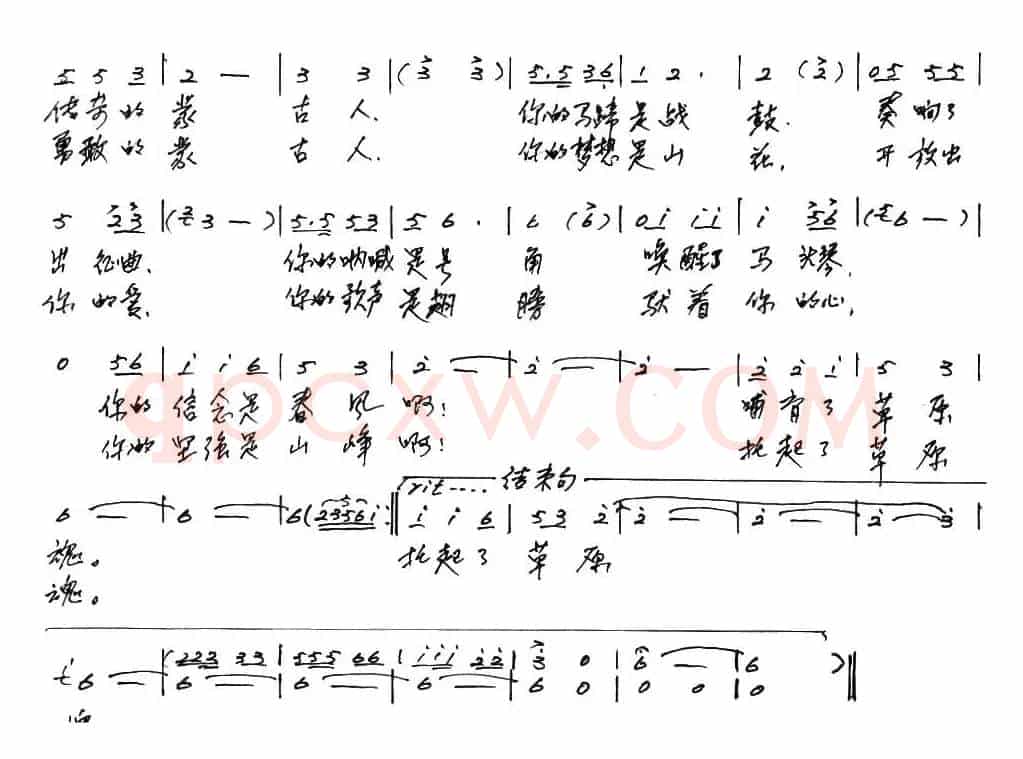 5 5 3 | 2 — | 3 3 | (3 3) | 5.5 36 | 1 2. | 2 (2) | 05 55 |
传奇的蒙 古人. 你的马蹄是战 鼓. 奏响了
勇敢的蒙 古人. 你的梦想是山 花, 开放出
5 23 | (3 3 —) | 5.5 53 | 5 6. | 6 (6) | 0i ii | i 56 | (6 6 —) |
出征曲, 你的呐喊是号 角 唤醒了马头琴,
你的爱, 你的歌声是翅 膀 驮着你的心,
0 56 | i i 6 | 5 3 | 2 — | 2 — | 2 — | 2 2 i | 5 3 |
你的信念是春风啊! 哺育了草原
你的坚强是山峰啊! 托起了草原
qpcxw.com
rit.... 结束句
6 — | 6 — | 6 (2356i :‖ i i 6 | 53 2 | 2 — | 2 — | 2 3 |
魂。 托起了草原
魂。
(223 33 | 555 66 | iii 22 | 3 0 | 6 — | 6 )‖
6 — | 6 — | 6 — | 6 — | 6 0 | 0 0 | 0